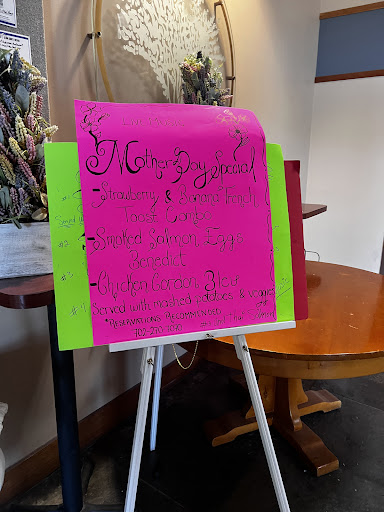 Mother's Day Special
- Strawberry & Banana French
Toast Combo
- Smoked Salmon Eggs
Benedict
- Chicken Cordon Bleu
Served with mashed potatoes & veggies
*RESERVATIONS RECOMMENDED